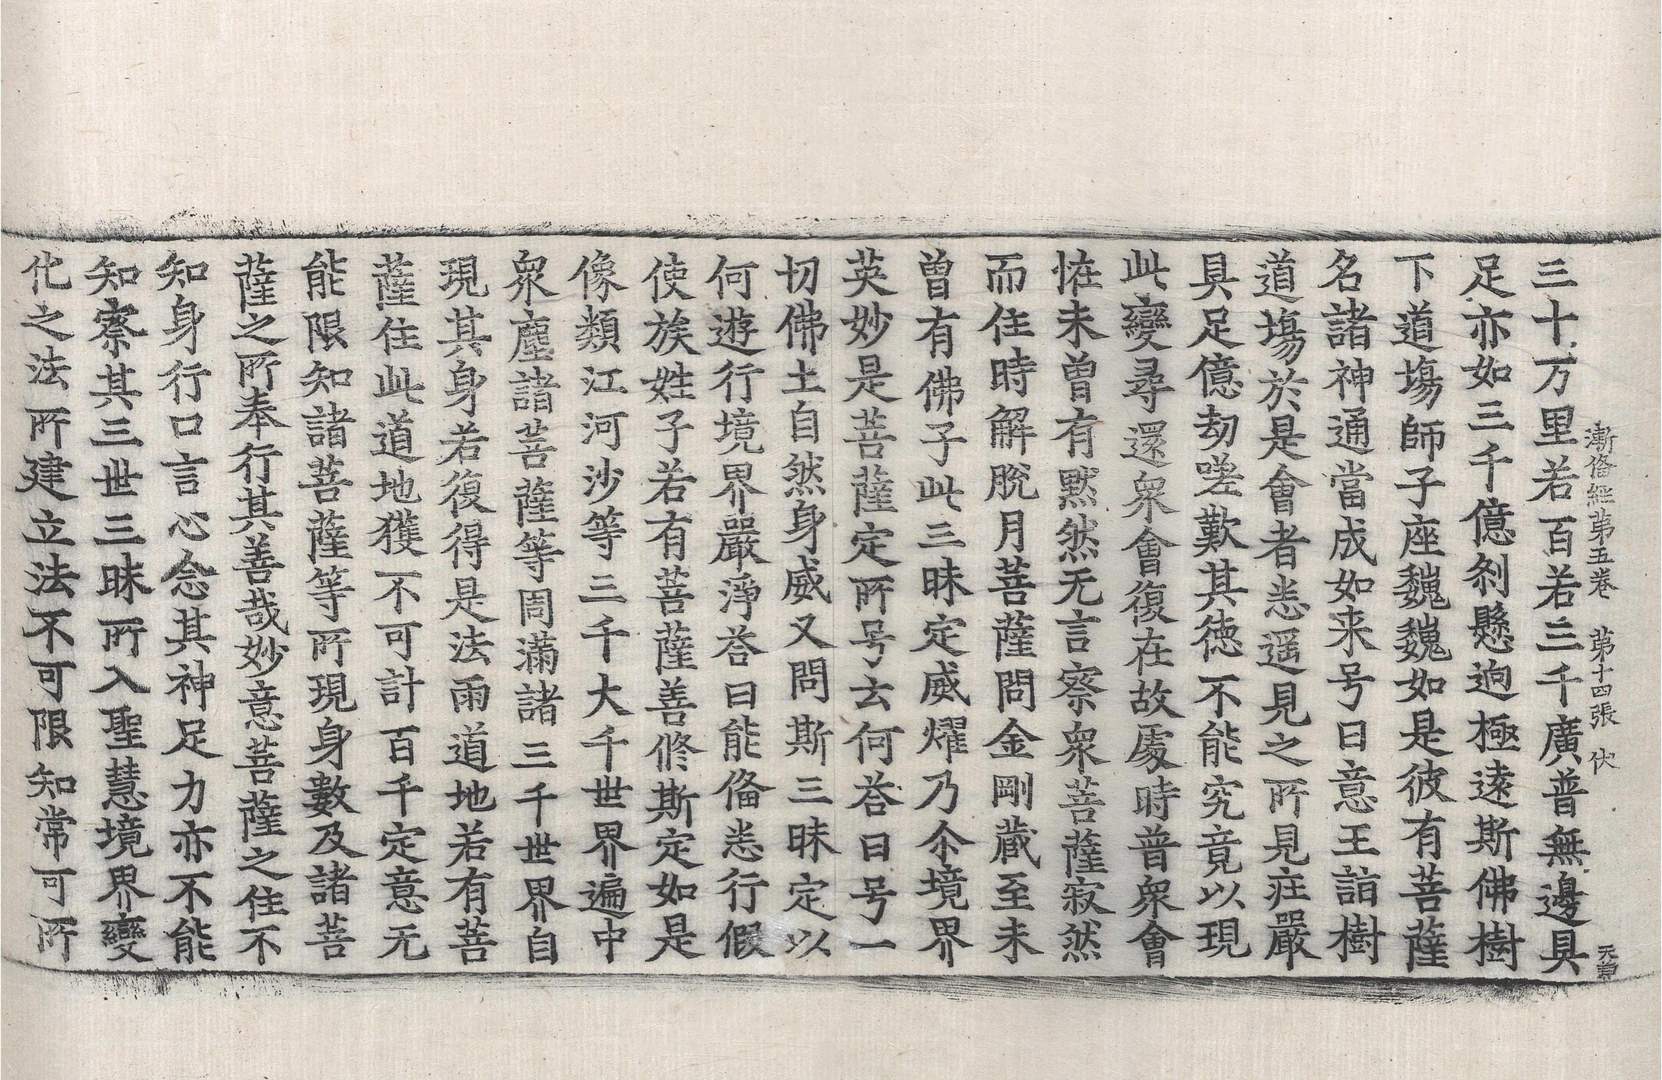 漸俻經第五卷　第十四張　伏
三十万里若百若三千廣普無邊具
足亦如三千億剎懸逈極遠斯佛樹
下道塲師子座魏魏如是彼有菩薩
名諸神通當成如来号曰意王詣樹
道塲於是會者悉遥見之所見莊嚴
具足億劫嗟歎其徳不能究竟以現
此變尋還衆會復在故處時普衆會
恠未曾有默然无言察衆菩薩寂然
而住時解脫月菩薩問金剛藏至未
曾有佛子此三昧定威耀乃尒境界
英妙是菩薩定所号云何荅曰号一
切佛土自然身威又問斯三昧定以
何遊行境界嚴淨荅曰能俻悉行假
使族姓子若有菩薩善修斯定如是
像類江河沙等三千大千世界遍中
衆塵諸菩薩等周滿諸三千世界自
現其身若復得是法雨道地若有菩
薩住此道地獲不可計百千定意无
能限知諸菩薩等所現身數及諸菩
薩之所奉行其善哉妙意菩薩之住不
知身行口言心念其神足力亦不能
知察其三世三昧所入聖慧境界變
化之法所建立法不可限知常可所